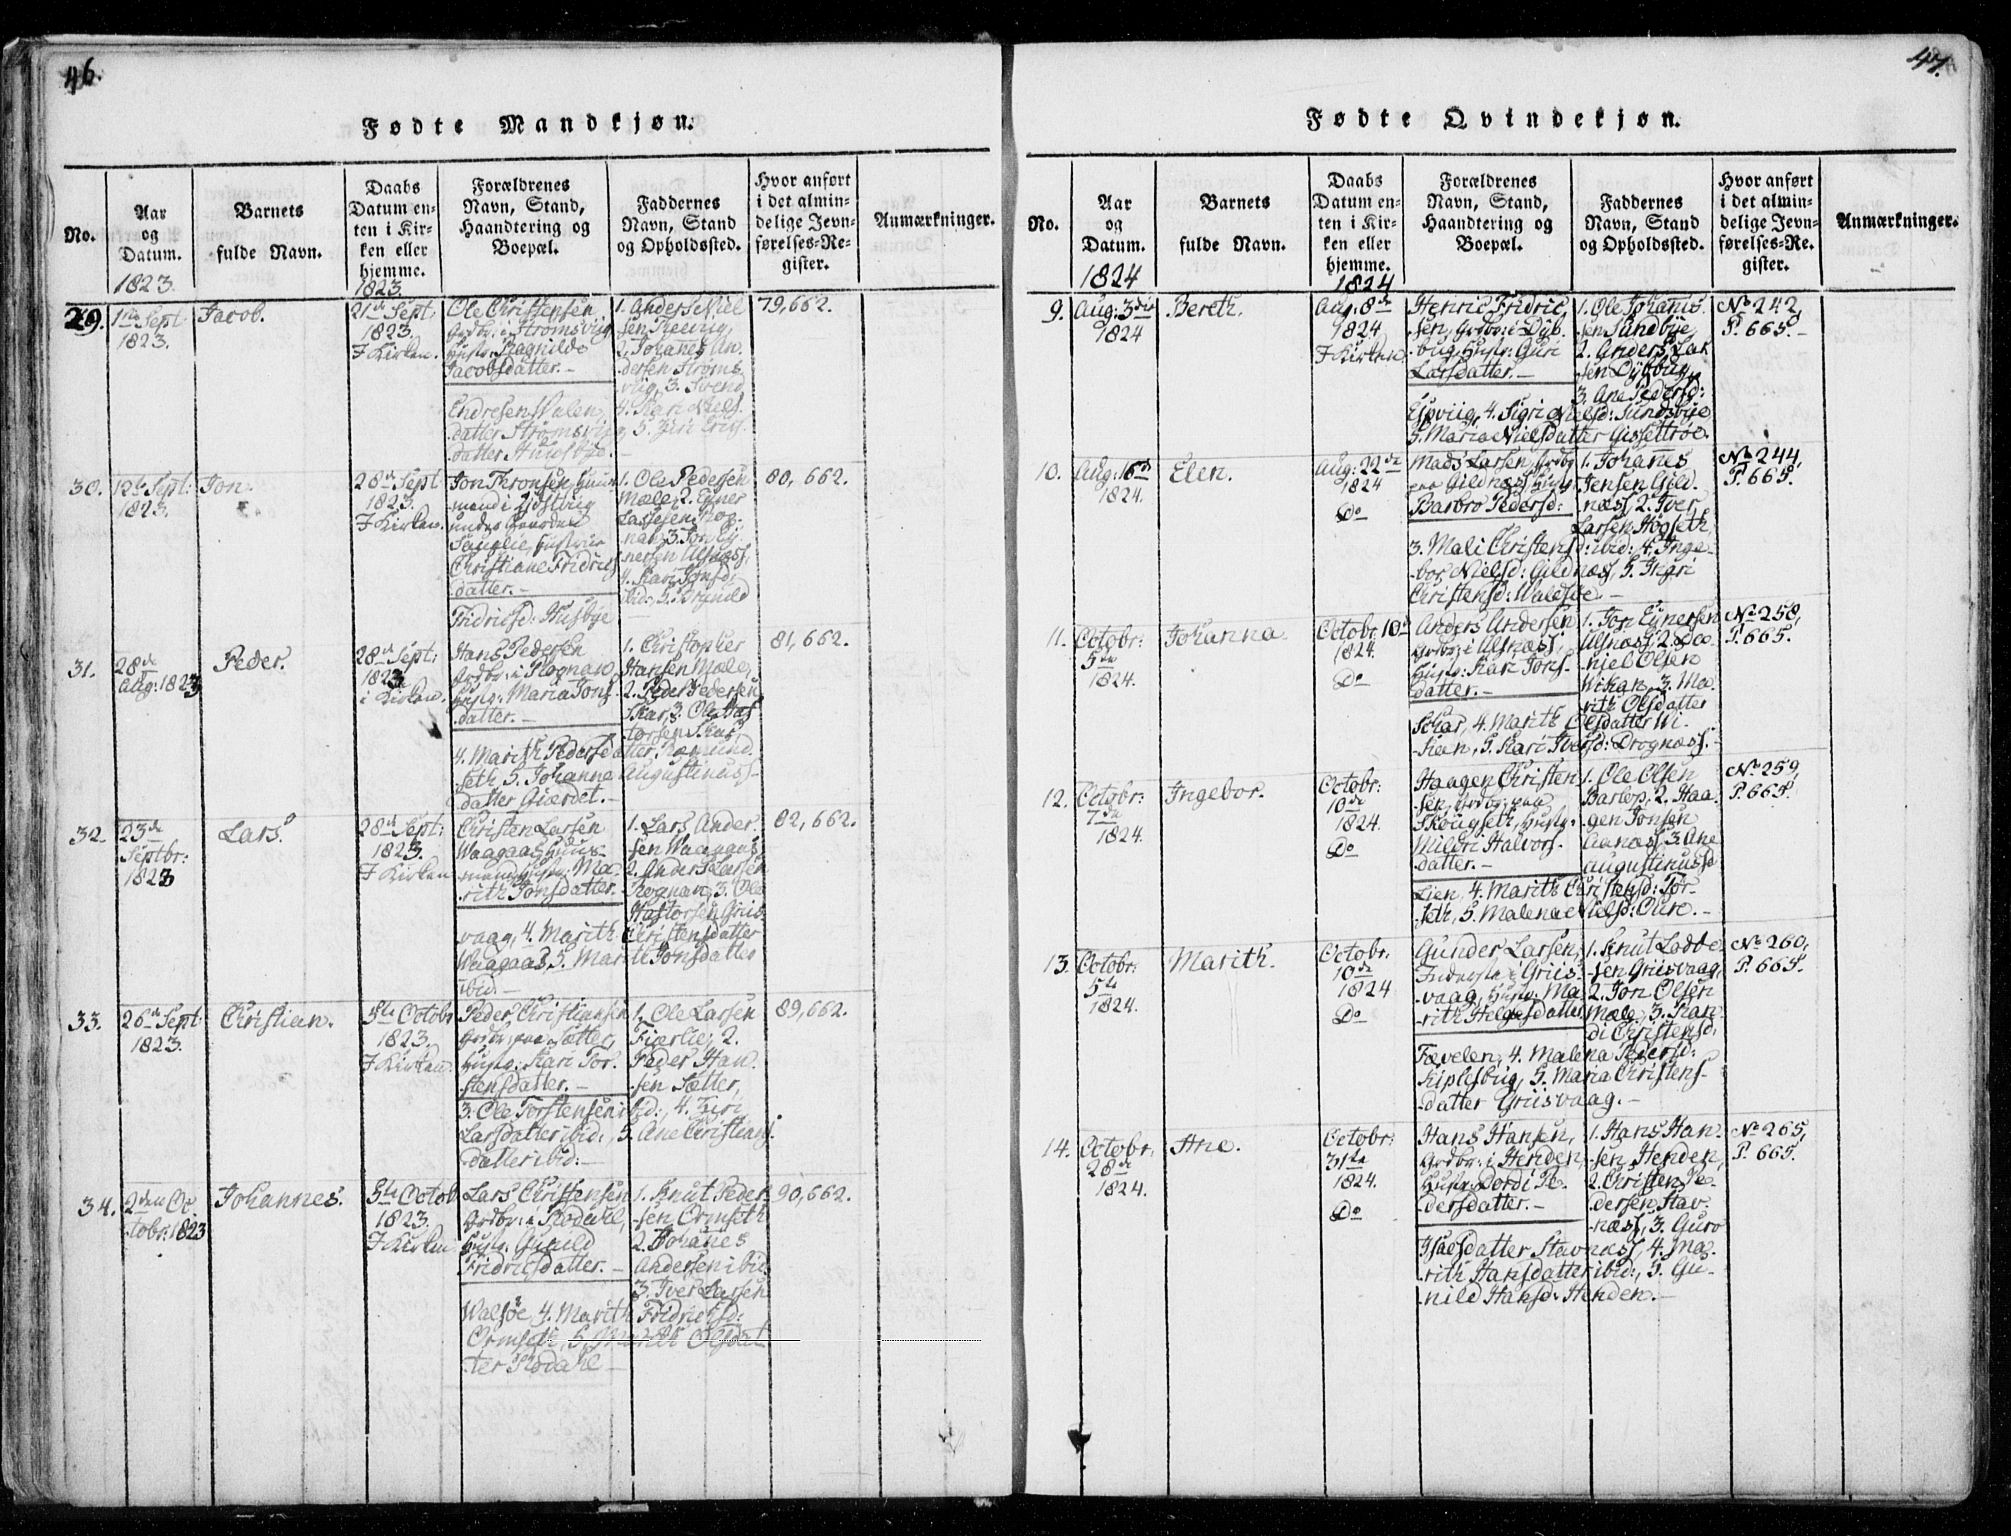 46.
Fødte Mandkjøn.
No.
Aar
og
Datum.
1823.
Barnets
fulde Navn.
Daabs
Datum en-
ten i Kir-
ken eller
hjemme.
1823.
Forældrenes
Navn, Stand,
Haandtering og
Boepæl.
Faddernes
Navn, Stand
og Opholdssted.
Hvor anført
i det almin-
delige Jevn-
førelses-Re-
gister.
Anmærkninger.
29.
1ste Sept.
1823.
Jacob.
21de Sept.
1823.
I Kirken.
Ole Christensen
Grdbr: i Strømsviig,
Hustr: Ragnilde
Jacobsdatter. –
1. Anders Niel
sen
2. Johanes An,
dersen Strøms,
viig, 3. Svend
79, 662.
Endresen Valen, 4. Kari Niels.
datter Strømsviig, 5.
datter Huusbye.
30.
12te Sept:
1823.
Jon.
28de Sept
1823.
I Kirken.
Jon Thronsen, Huus
mand i
under Gaarden
Sauglie, Hustrue
Christiane Fridrics
datter. –
1. Ole Pedersen
Mæle, 2. Eyner
Lassesen, Rog,
nan, 3. Jon Ey,
nersen Ulsnæss,
4. Kari Jonsd:
ibid:, 5.
80, 662.
Fridricsd: Husbye
31.
28de
Aug: 1823
Peder.
28de Sept:
1823
i Kirken.
Hans Pedersen
Grdbr: i Rognan
Hustr: Maria Jons-
datter. –
1. Christopher
Hansen Mæle,
2. Peder Pedersen
Skar, 3. Ole Has
torsen Skar,
81, 662.
4. Marith Pedersdatter, Rømund
seth 5. Johanne Augustinuss-
datter Giærdet. –
32.
23de
Septbr:
1823
Lars.
28de Sept:
1823.
I Kirken
Christen Larsen
Waagaas, Huus-
mand, Hustr: Ma,
rith Jonsdatter. –
1. Lars Ander.
sen Waagaas
2. Anders Larsen
Rognan, 3. Ole
Hastorsen Griis-
82, 662.
vaag, 4. Marith Christensdatter
Waagaas, 5. Marith Jonsdatter
ibid. –
33.
26de Sept:
1823.
Christian.
5te Octobr
1823.
I Kirken
Peder Christiansen
Grdbr: paa Sætter,
Hustr: Kari Tor.
stensdatter. –
1. Ole Larsen
Fiærlie, 2.
Peder Han.
sen Sætter,
89, 662.
3. Ole Torstensen ibid:, 4.
Larsdatter ibid:, 5. Ane Christians.
datter ibid: –
34.
2den Oc
tobr: 1823
Johannes.
5te Octob.
1823.
I Kirken
Lars Christensen
Grdbr: i Rødahl,
Hustr: Gunild
Fridricsdatter. –
1. Knut Peder
sen Ormseth
2. Johanes
Andersen ibid
3. Iver Larsen
90, 662.
Walsøe, 4. Marith Fridricsd:
Ormseth, 5. Marith Olsdat
ter Rødahl –
47.
Fødte Qvindekjøn.
No.
Aar
og
Datum.
1824
Barnets
fulde Navn.
Daabs
Datum en-
ten i Kir-
ken eller
hjemme.
1824
Forældrenes
Navn, Stand,
Haandtering og
Boepæl.
Faddernes
Navn, Stand
og Opholdssted.
Hvor anført
i det almin-
delige Jevn-
førelses-Re-
gister.
Anmærkninger.
9.
Aug: 3die
1824
Bereth.
Aug: 8de
1824
I Kirken
Henric Fridric,
sen, Grdbr: i Dyb.
bug, Hustr: Guri
Larsdatter. –
1. Ole Johans.
sen Sundbye
2. Anders Lar
sen Dybbug
3. Ane Pedersd:
No 242,
P. 665. –
Espviig, 4. Sigri Nielsd: Sundsbye
5. Maria Nielsdatter Gissettrøe.
10.
Aug: 16de
1824.
Elen.
Aug: 22de
1824
Do
Mads Larsen, Grdbr
paa Gildnæs, Hustr:
Barbro Pedersd:
1. Johanes
Jensen Gild.
næss, 2. Iver
Larsen Høgseth,
No 244,
P. 665.
3. Mali Christensd: ibid: 4. Inge.
bor Nielsd: Gildnæss, 5. Ingri
Christensd: Waldsøe –
11.
Octobr:
5te
1824.
Johanna
Octobr: 10de
1824.
Do
Anders Andersen
Grdbr: i Ulsnæss,
Hustr: Kari Jons.
datter. –
1. Jon Eynersen
Ulsnæs, 2. Da
niel Olsen
Wikan, 3. Ma
rith Olsdatter
No 258,
P. 665.
Schar, 4. Marith Olsdatter Wi
kan, 5. Kari Iversd: Drognæss.
12.
Octobr:
7de
1824.
Ingebor.
Octobr:
10de
1824.
Do
Haagen Christen
sen, Grdbr: paa
Skougseth, Hustr:
Milldri Halvors.
datter. –
1. Ole Olsen
Barlop, 2. Haa
gen Jonsen
Aanæs, 3. Ane
Augustinussd
No 259,
P. 665.
Lien, 4. Marith Christensd: Tør
seth, 5. Malena Nielsd: Oure. –
13.
Octobr:
5te
1824.
Marith.
Octobr.
10de
1824
Do
Gunder Larsen,
Inderste i Griis.
vaag, Hustr: Ma
rith Helgesdatter
1. Knut Ladve
sen Griisvaag,
2. Jon Olsen
Mæle, 3. Kare
di Christensd.
No 260,
P. 665.
Fævelen, 4. Malena Pedersd:
Kiplesbug, 5. Maria Christens-
datter Griisvaag. –
14.
Octobr:
28de
1824.
Ane.
Octobr:
31te
1824.
Do
Hans Hansen,
Grdbr: i Henden,
Hustr: Dordi Pe.
dersdatter. –
1. Hans Han-
sen Henden,
2. Christen Pe
dersen Stav.
næss, 3. Guro
No 265,
P. 665.
Isacsdatter Stavnæss, 4. Ma.
rith Hansdatter ibid:, 5. Gu-
nild Hansd: Henden. –